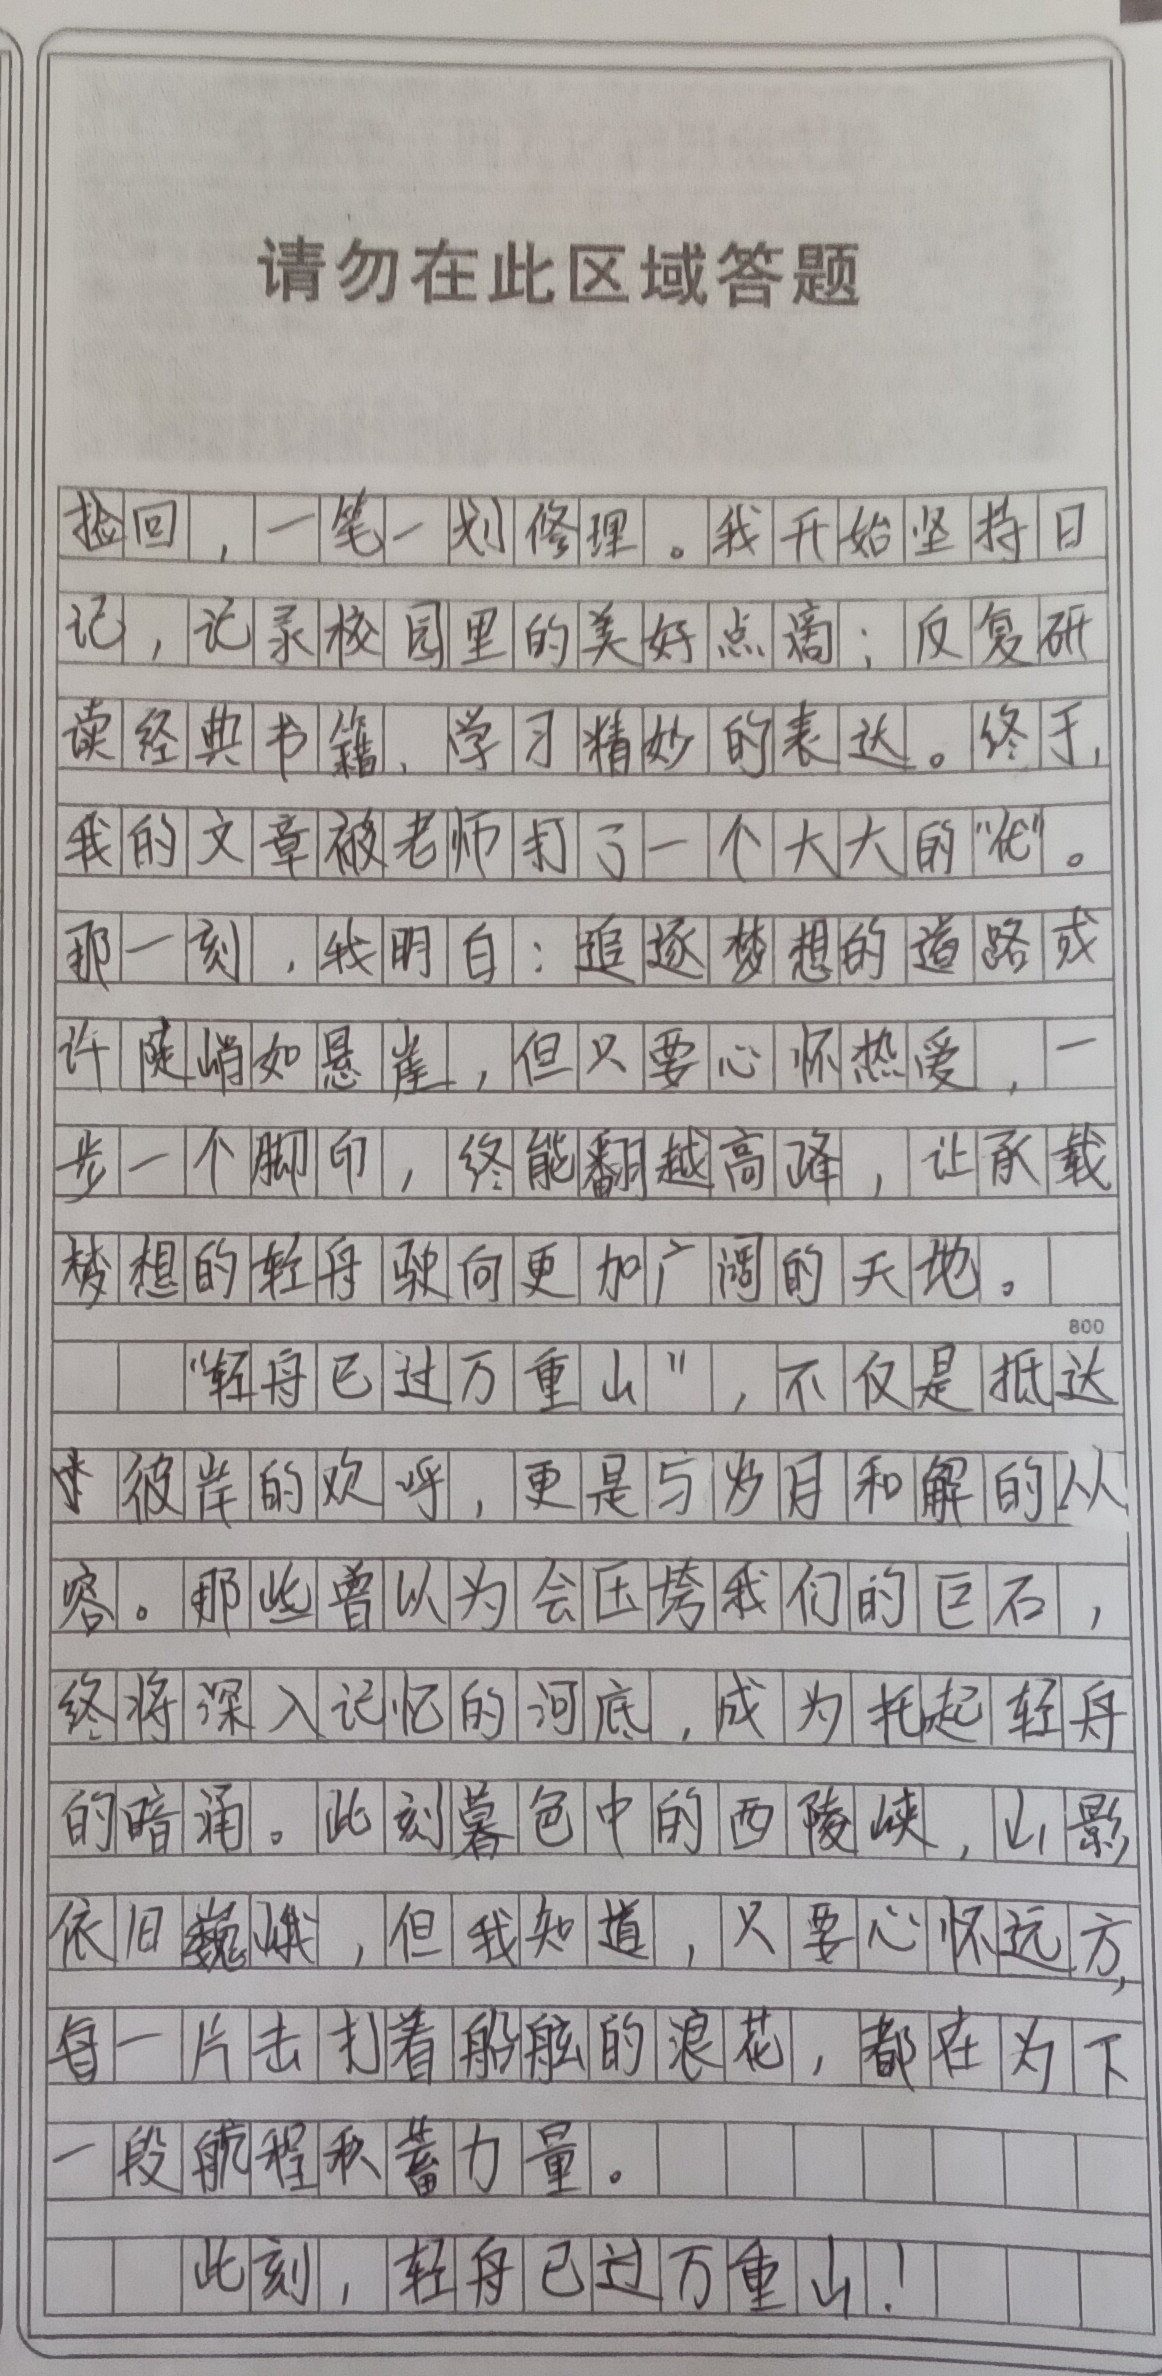 请勿在此区域答题
捡回，一笔一划修理。我开始坚持日
记，记录校园里的美好点滴；反复研
读经典书籍，学习精妙的表达。终于，
我的文章被老师打了一个大大的“优”。
那一刻，我明白：追逐梦想的道路或
许陡峭如悬崖，但只要心怀热爱，一
步一个脚印，终能翻越高峰，让承载
梦想的轻舟驶向更加广阔的天地。
800
“轻舟已过万重山”，不仅是抵达
彼岸的欢呼，更是与岁月和解的从
容。那些曾以为会压垮我们的巨石，
终将深入记忆的河底，成为托起轻舟
的暗涌。此刻暮色中的西陵峡，山影
依旧巍峨，但我知道，只要心怀远方，
每一片击打着船舷的浪花，都在为下
一段航程积蓄力量。
此刻，轻舟已过万重山！